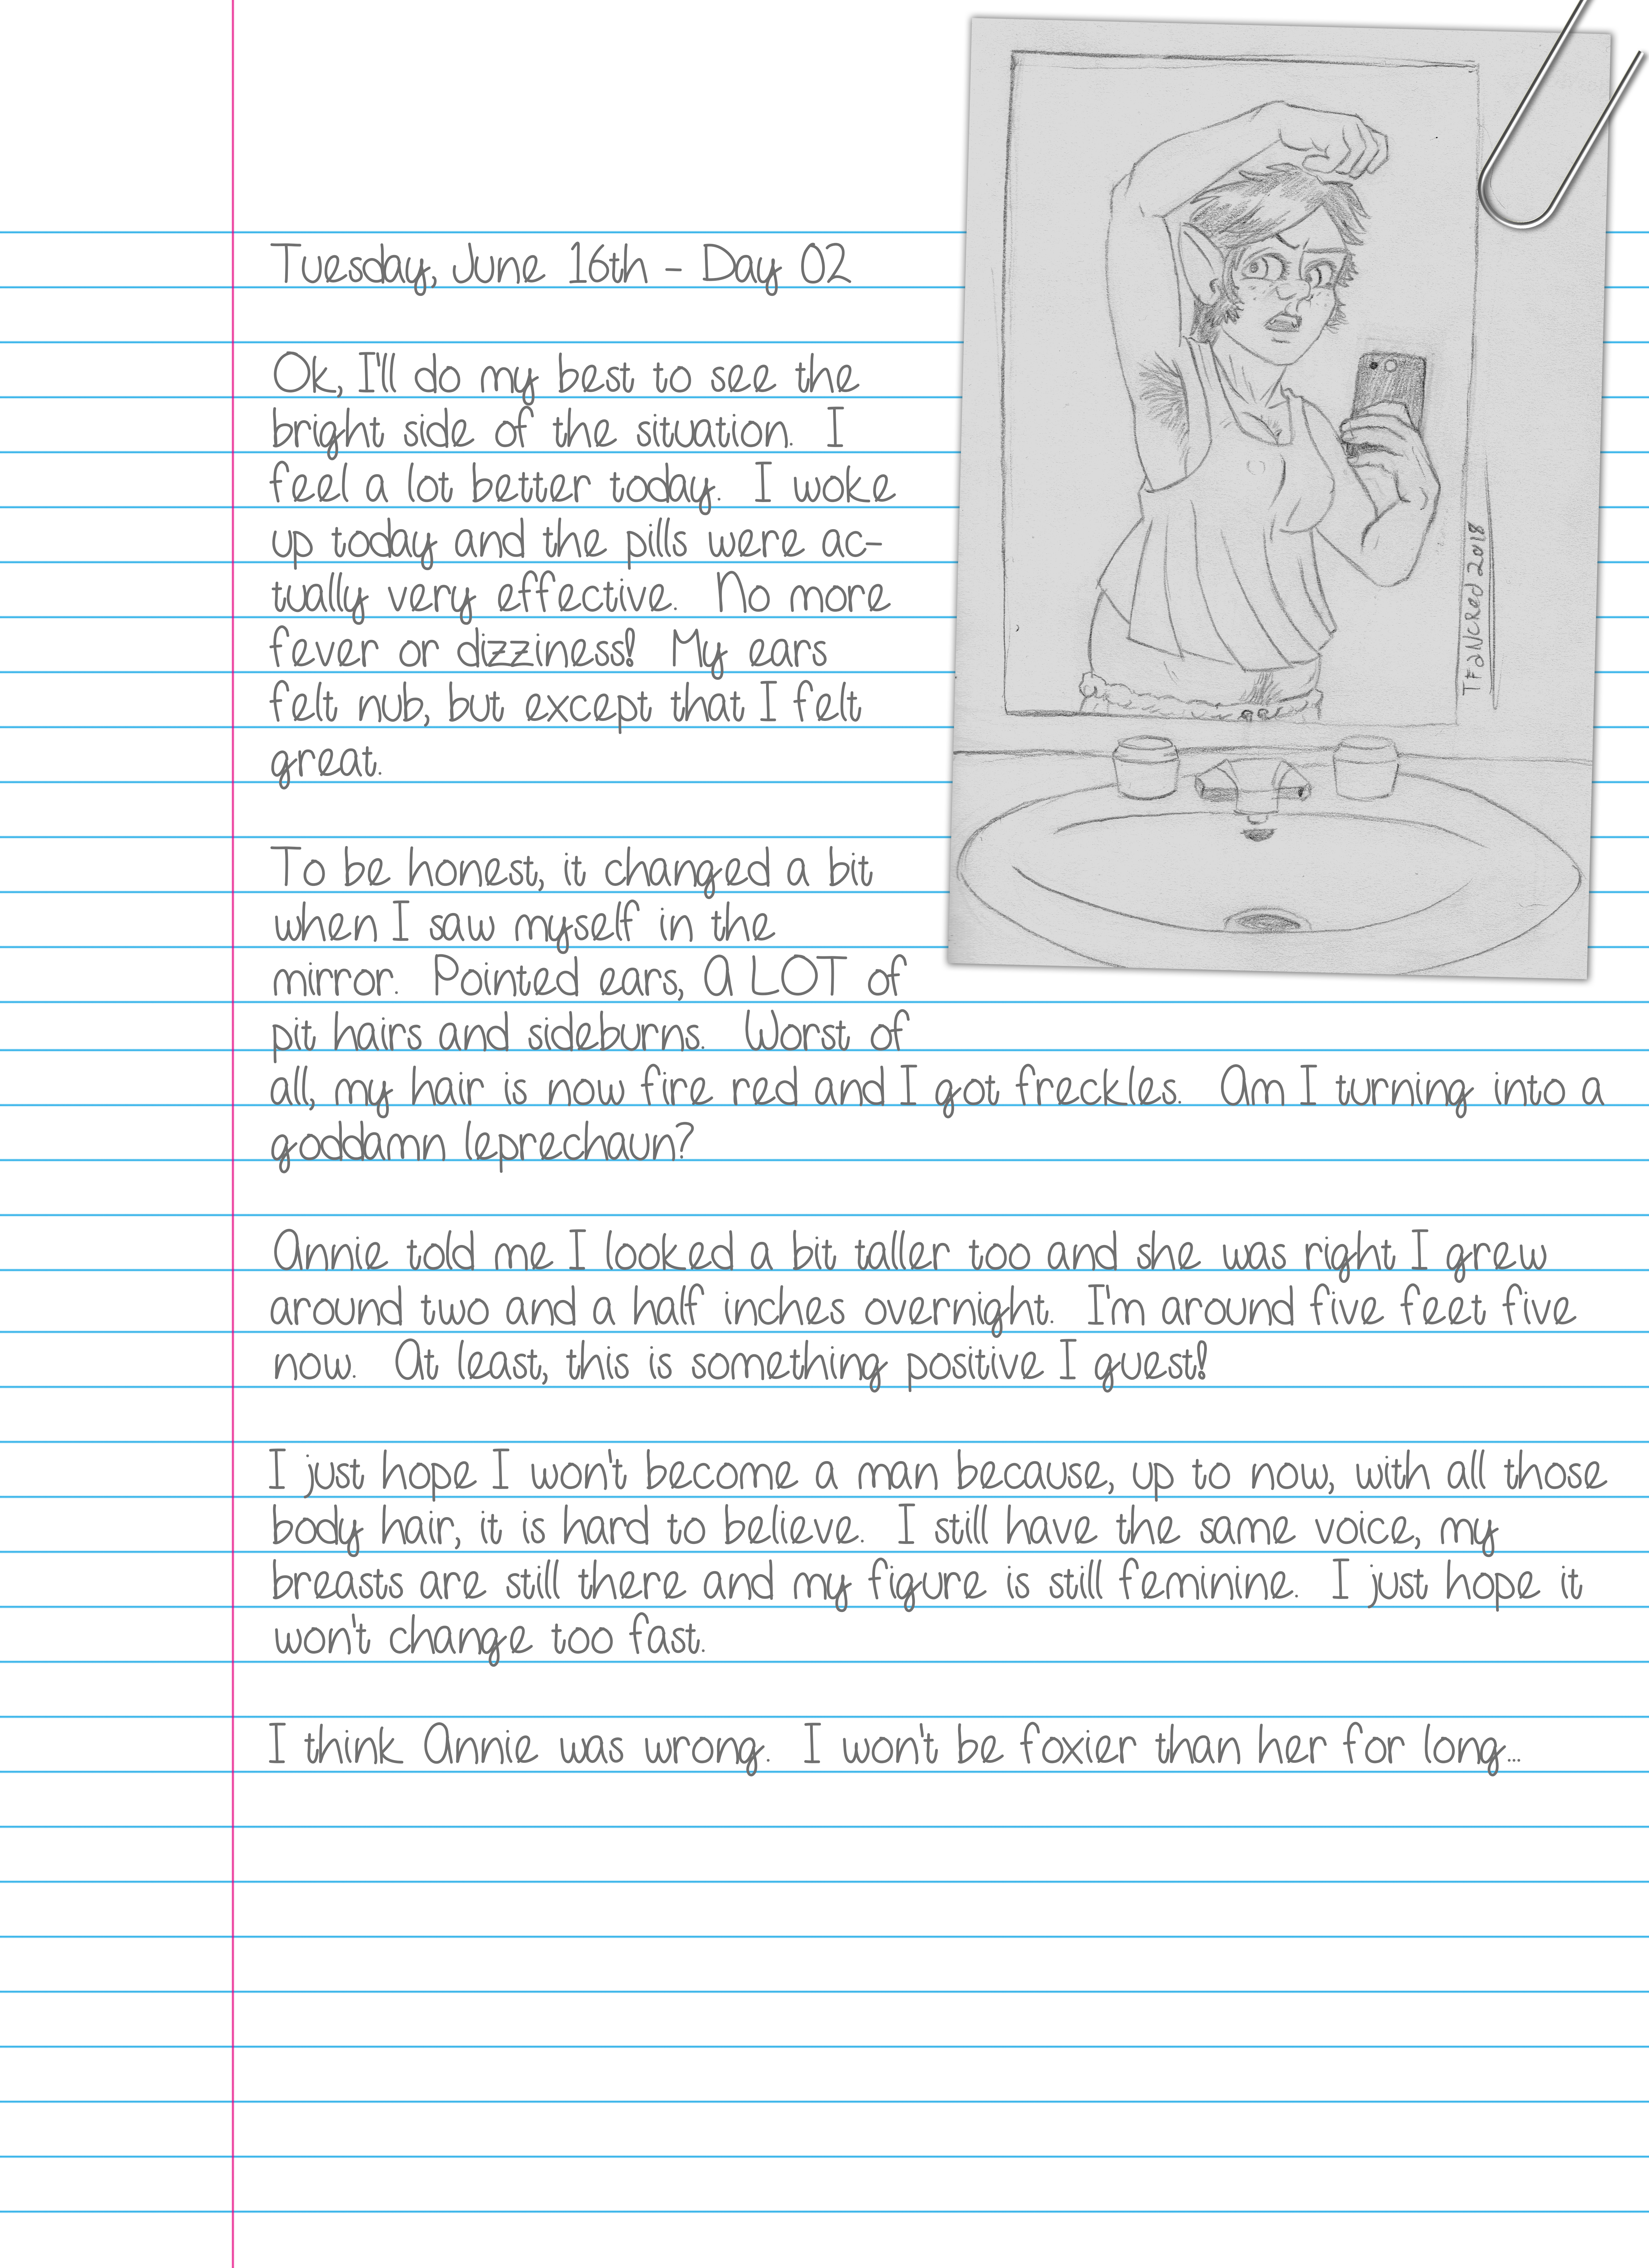 Tuesday, June 16th - Day 02
Ok, I'll do my best to see the
bright side of the situation. I
feel a lot better today. I woke
up today and the pills were ac-
tually very effective. No more
fever or dizziness! My ears
felt nub, but except that I felt
great.
To be honest, it changed a bit
when I saw myself in the
mirror. Pointed ears, A LOT of
pit hairs and sideburns. Worst of
all, my hair is now fire red and I got freckles. Am I turning into a
goddamn leprechaun?
Annie told me I looked a bit taller too and she was right I grew
around two and a half inches overnight. I'm around five feet five
now. At least, this is something positive I guest!
I just hope I won't become a man because, up to now, with all those
body hair, it is hard to believe. I still have the same voice, my
breasts are still there and my figure is still feminine. I just hope it
won't change too fast.
I think Annie was wrong. I won't be foxier than her for long...
TFancred 2018